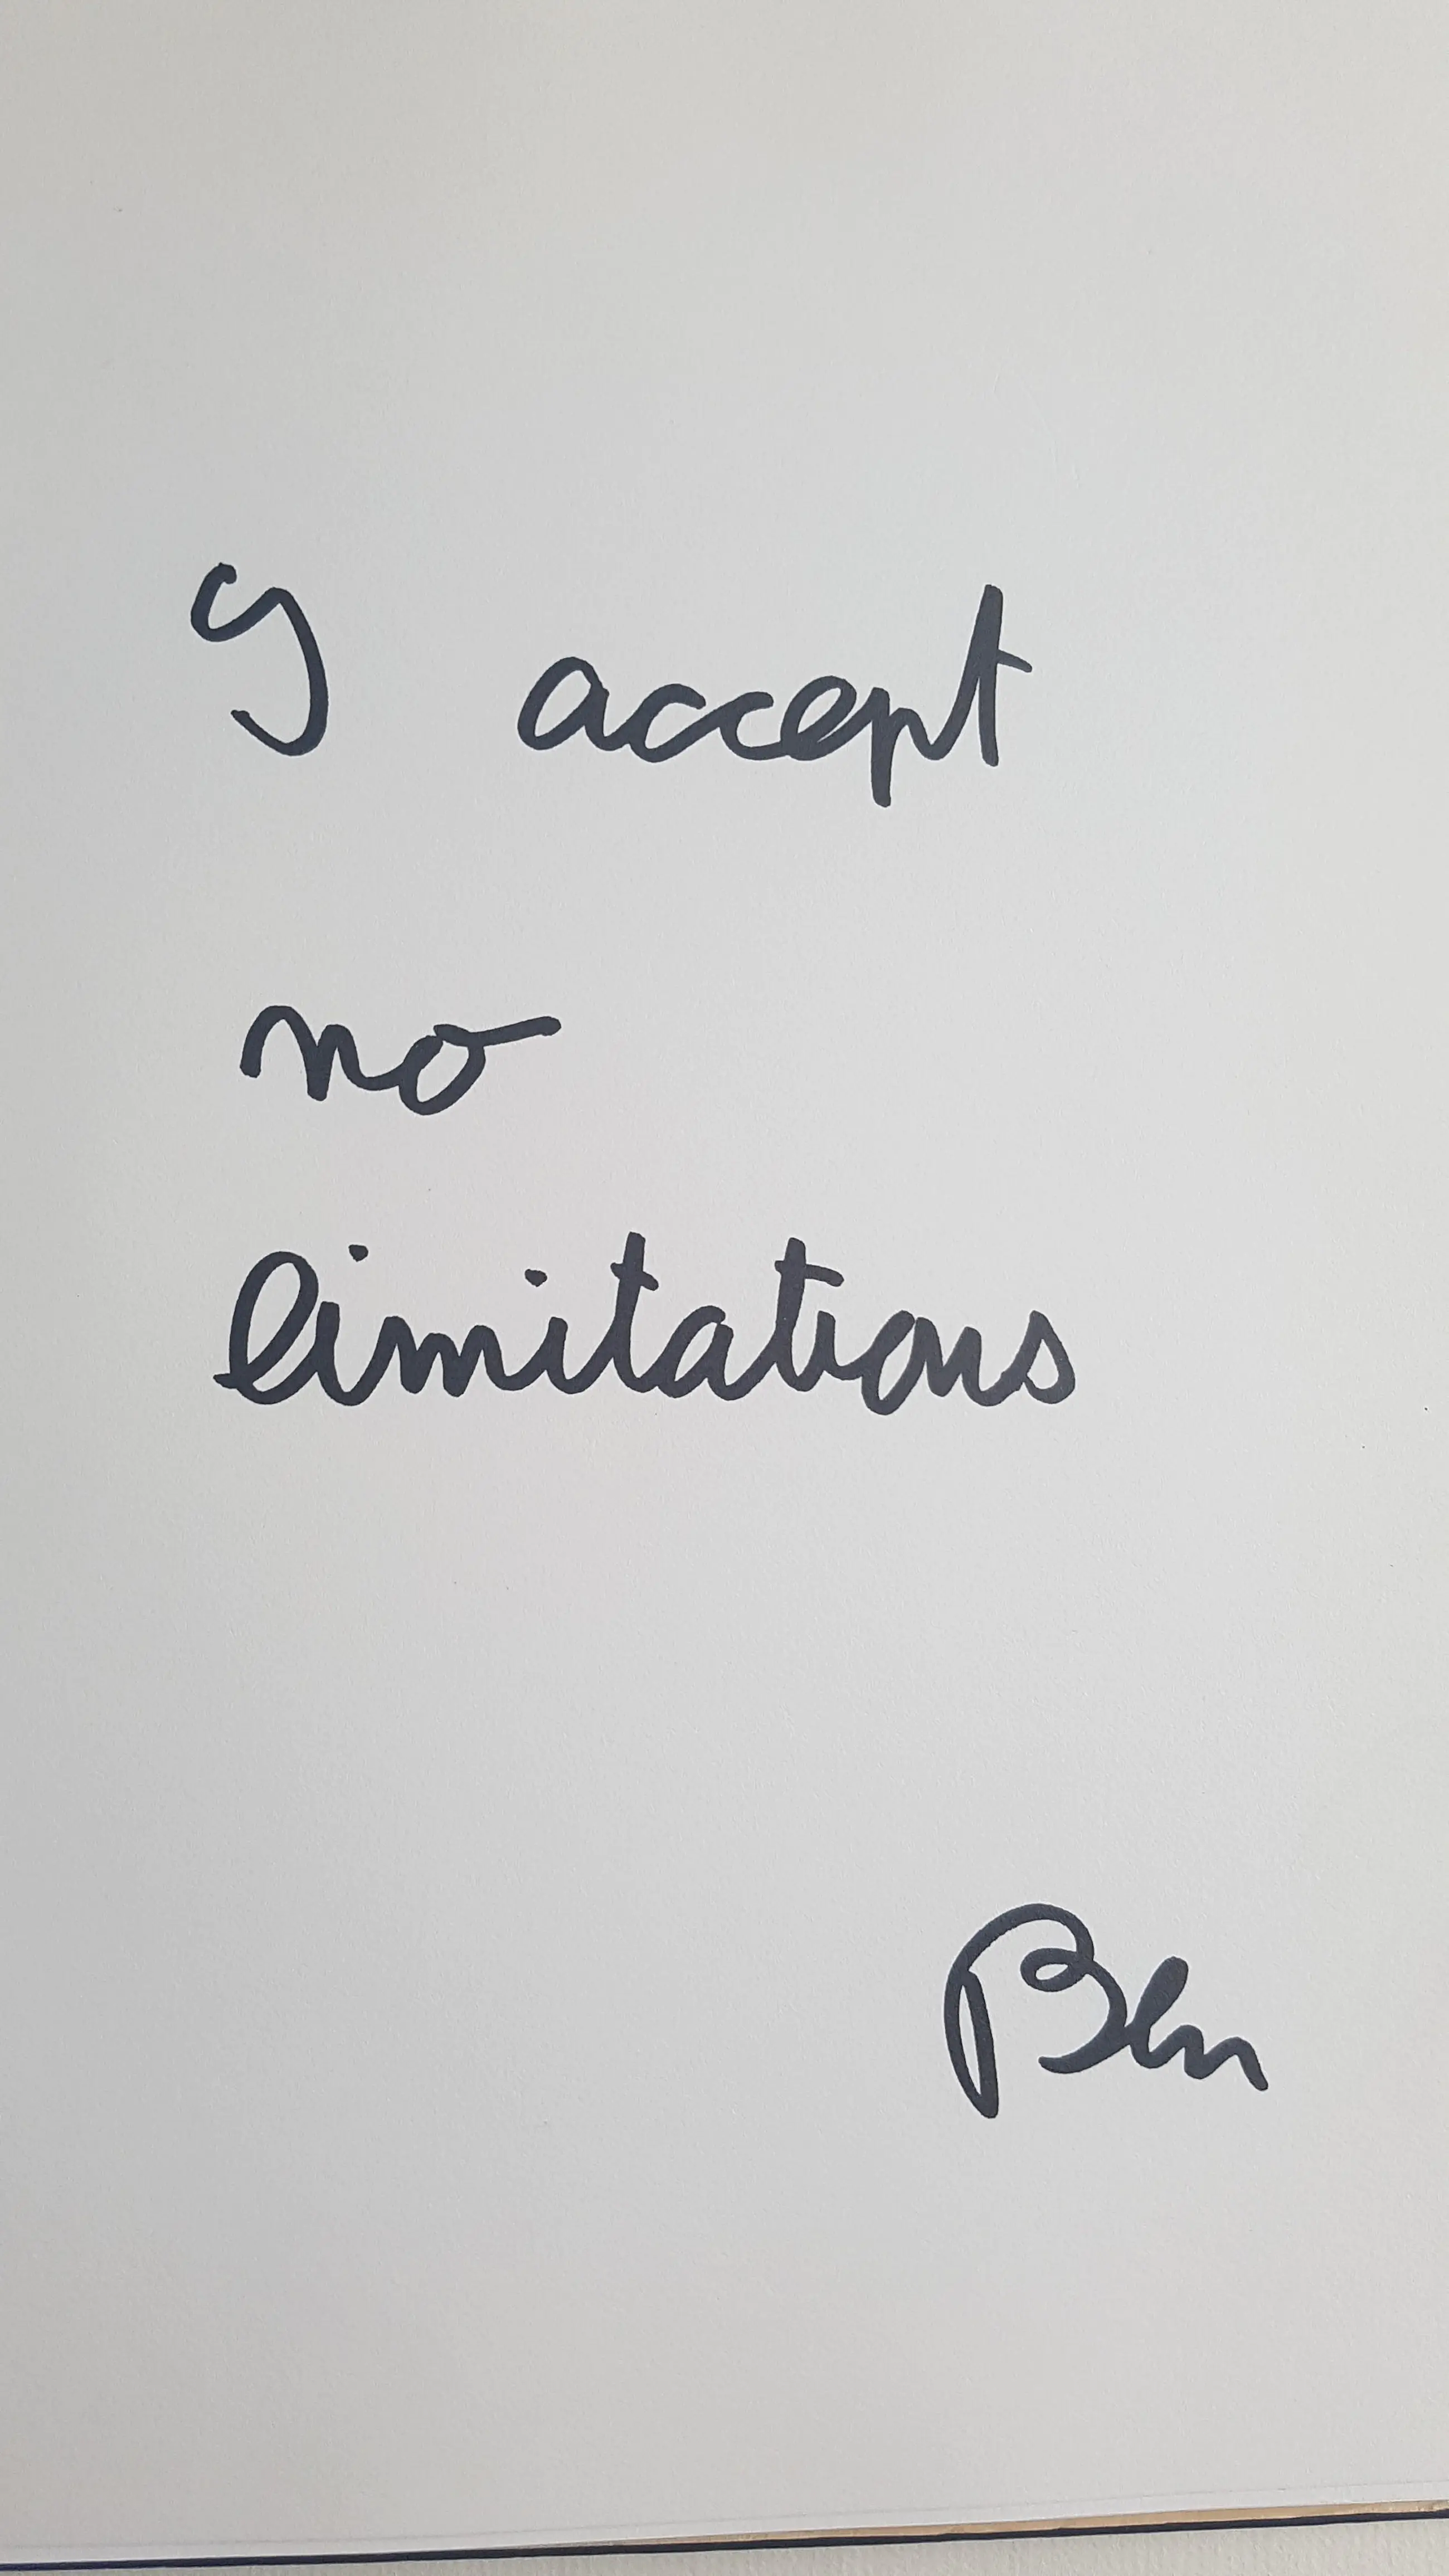 I accept
no
limitations
Ben